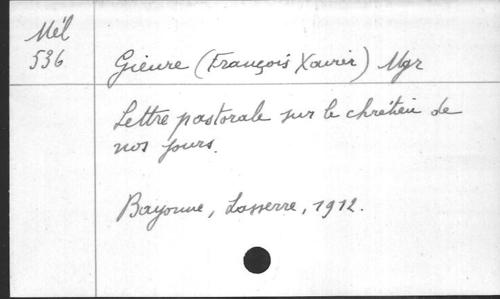 Mél
536
Gieure (François Xavier) Mgr
Lettre pastorale sur le chrétien de
nos jours.
Bayonne, Lasserre, 1912.